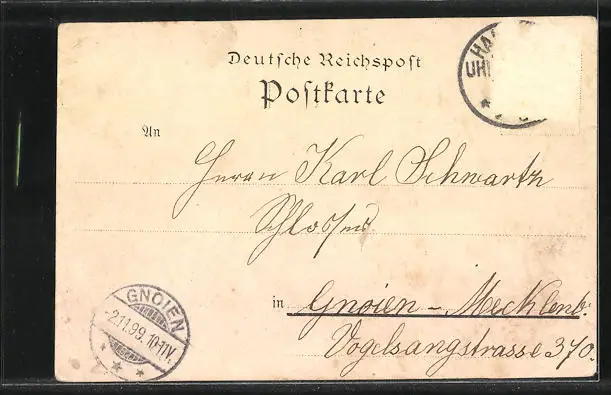 Deutsche Reichspost
Postkarte
HA
UH
An
Herrn Karl Schwartz
Schlosser
in Gnoien - Mecklenb:
Vogelsangstrasse 370.
GNOIEN
-2.11.99. 10-11V.